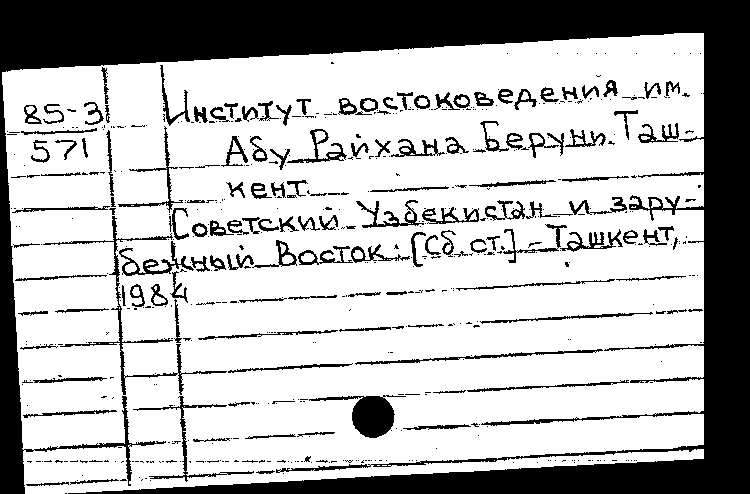 85-3
571
Институт востоковедения им.
Абу Райхана Беруни. Таш-
кент.
Советский Узбекистан и зару-
бежный Восток: [Сб. ст.] - Ташкент,
1984